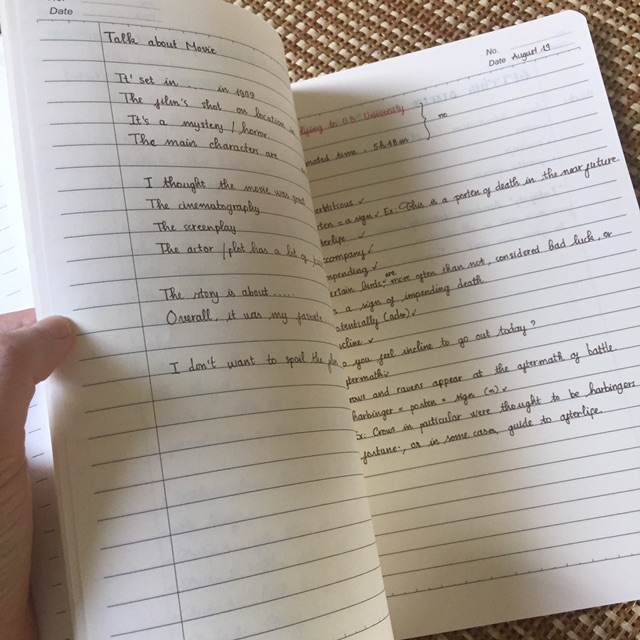 Date
Talk about Movie
It' set in ..... in 1999
The film's shot on location
It's a mystery / horror
The main characters are
I thought the movie was great
The cinematography
The screenplay
The actor / plot has a lot of
The story is about .....
Overall, it was my favorite
I don't want to spoil the plot
No.
Date August 19
lying to U.S. University
mated time : 5h48m
me
✓
= a sign ✓ Ex: This is a porten of death in the near future.
terlife ✓
company ✓
mpending ✓
ertain birds are more often than not, considered bad luck, or
a sign of impending death
otentially (adv) ✓
cline ✓
o you feel incline to go out today ?
ftermath ✓
rows and ravens appear at the aftermath of battle
harbinger = porten = sign (n) ✓
x: Crows in particular were thought to be harbingers
fortune, or in some cases, guide to afterlife.